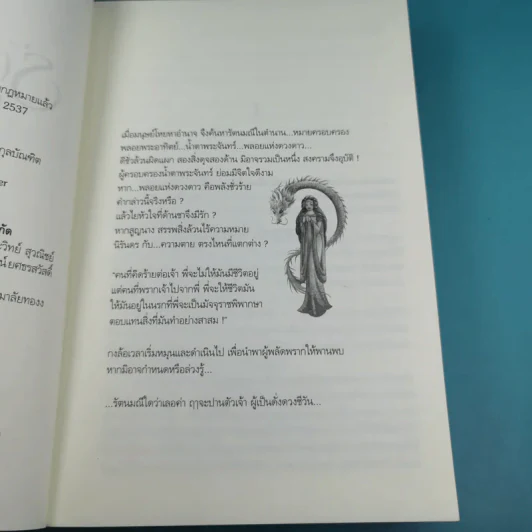 กฎหมายแล้ว
2537
กุลบัณฑิต
er
วิทย์ สุวณิชย์
มาลัยทองง
เมื่อมนุษย์โหยหาอำนาจ จึงค้นหารัตนมณีในตำนาน...หมายครอบครอง
พลอยพระอาทิตย์...น้ำตาพระจันทร์...พลอยแห่งดวงดาว...
ดีชั่วล้วนผิดแผก สองสิ่งดุจสองด้าน มิอาจรวมเป็นหนึ่ง สงครามจึงอุบัติ !
ผู้ครอบครองน้ำตาพระจันทร์ ย่อมมีจิตใจดีงาม
หาก...พลอยแห่งดวงดาว คือพลังชั่วร้าย
คำกล่าวนี้จริงหรือ ?
แล้วไยหัวใจที่ด้านชาจึงมีรัก ?
หากสูญนาง สรรพสิ่งล้วนไร้ความหมาย
นิรันดร กับ...ความตาย ตรงไหนที่แตกต่าง ?
"คนที่คิดร้ายต่อเจ้า พี่จะไม่ให้มันมีชีวิตอยู่
แต่คนที่พรากเจ้าไปจากพี่ พี่จะให้ชีวิตมัน
ให้มันอยู่ในนรกที่พี่จะเป็นมัจจุราชพิพากษา
ตอบแทนสิ่งที่มันทำอย่างสาสม !"
กงล้อเวลาเริ่มหมุนและดำเนินไป เพื่อนำพาผู้พลัดพรากให้พานพบ
หากมิอาจกำหนดหรือล่วงรู้...
...รัตนมณีใดว่าเลอค่า ฤๅจะปานตัวเจ้า ผู้เป็นดั่งดวงชีวัน...